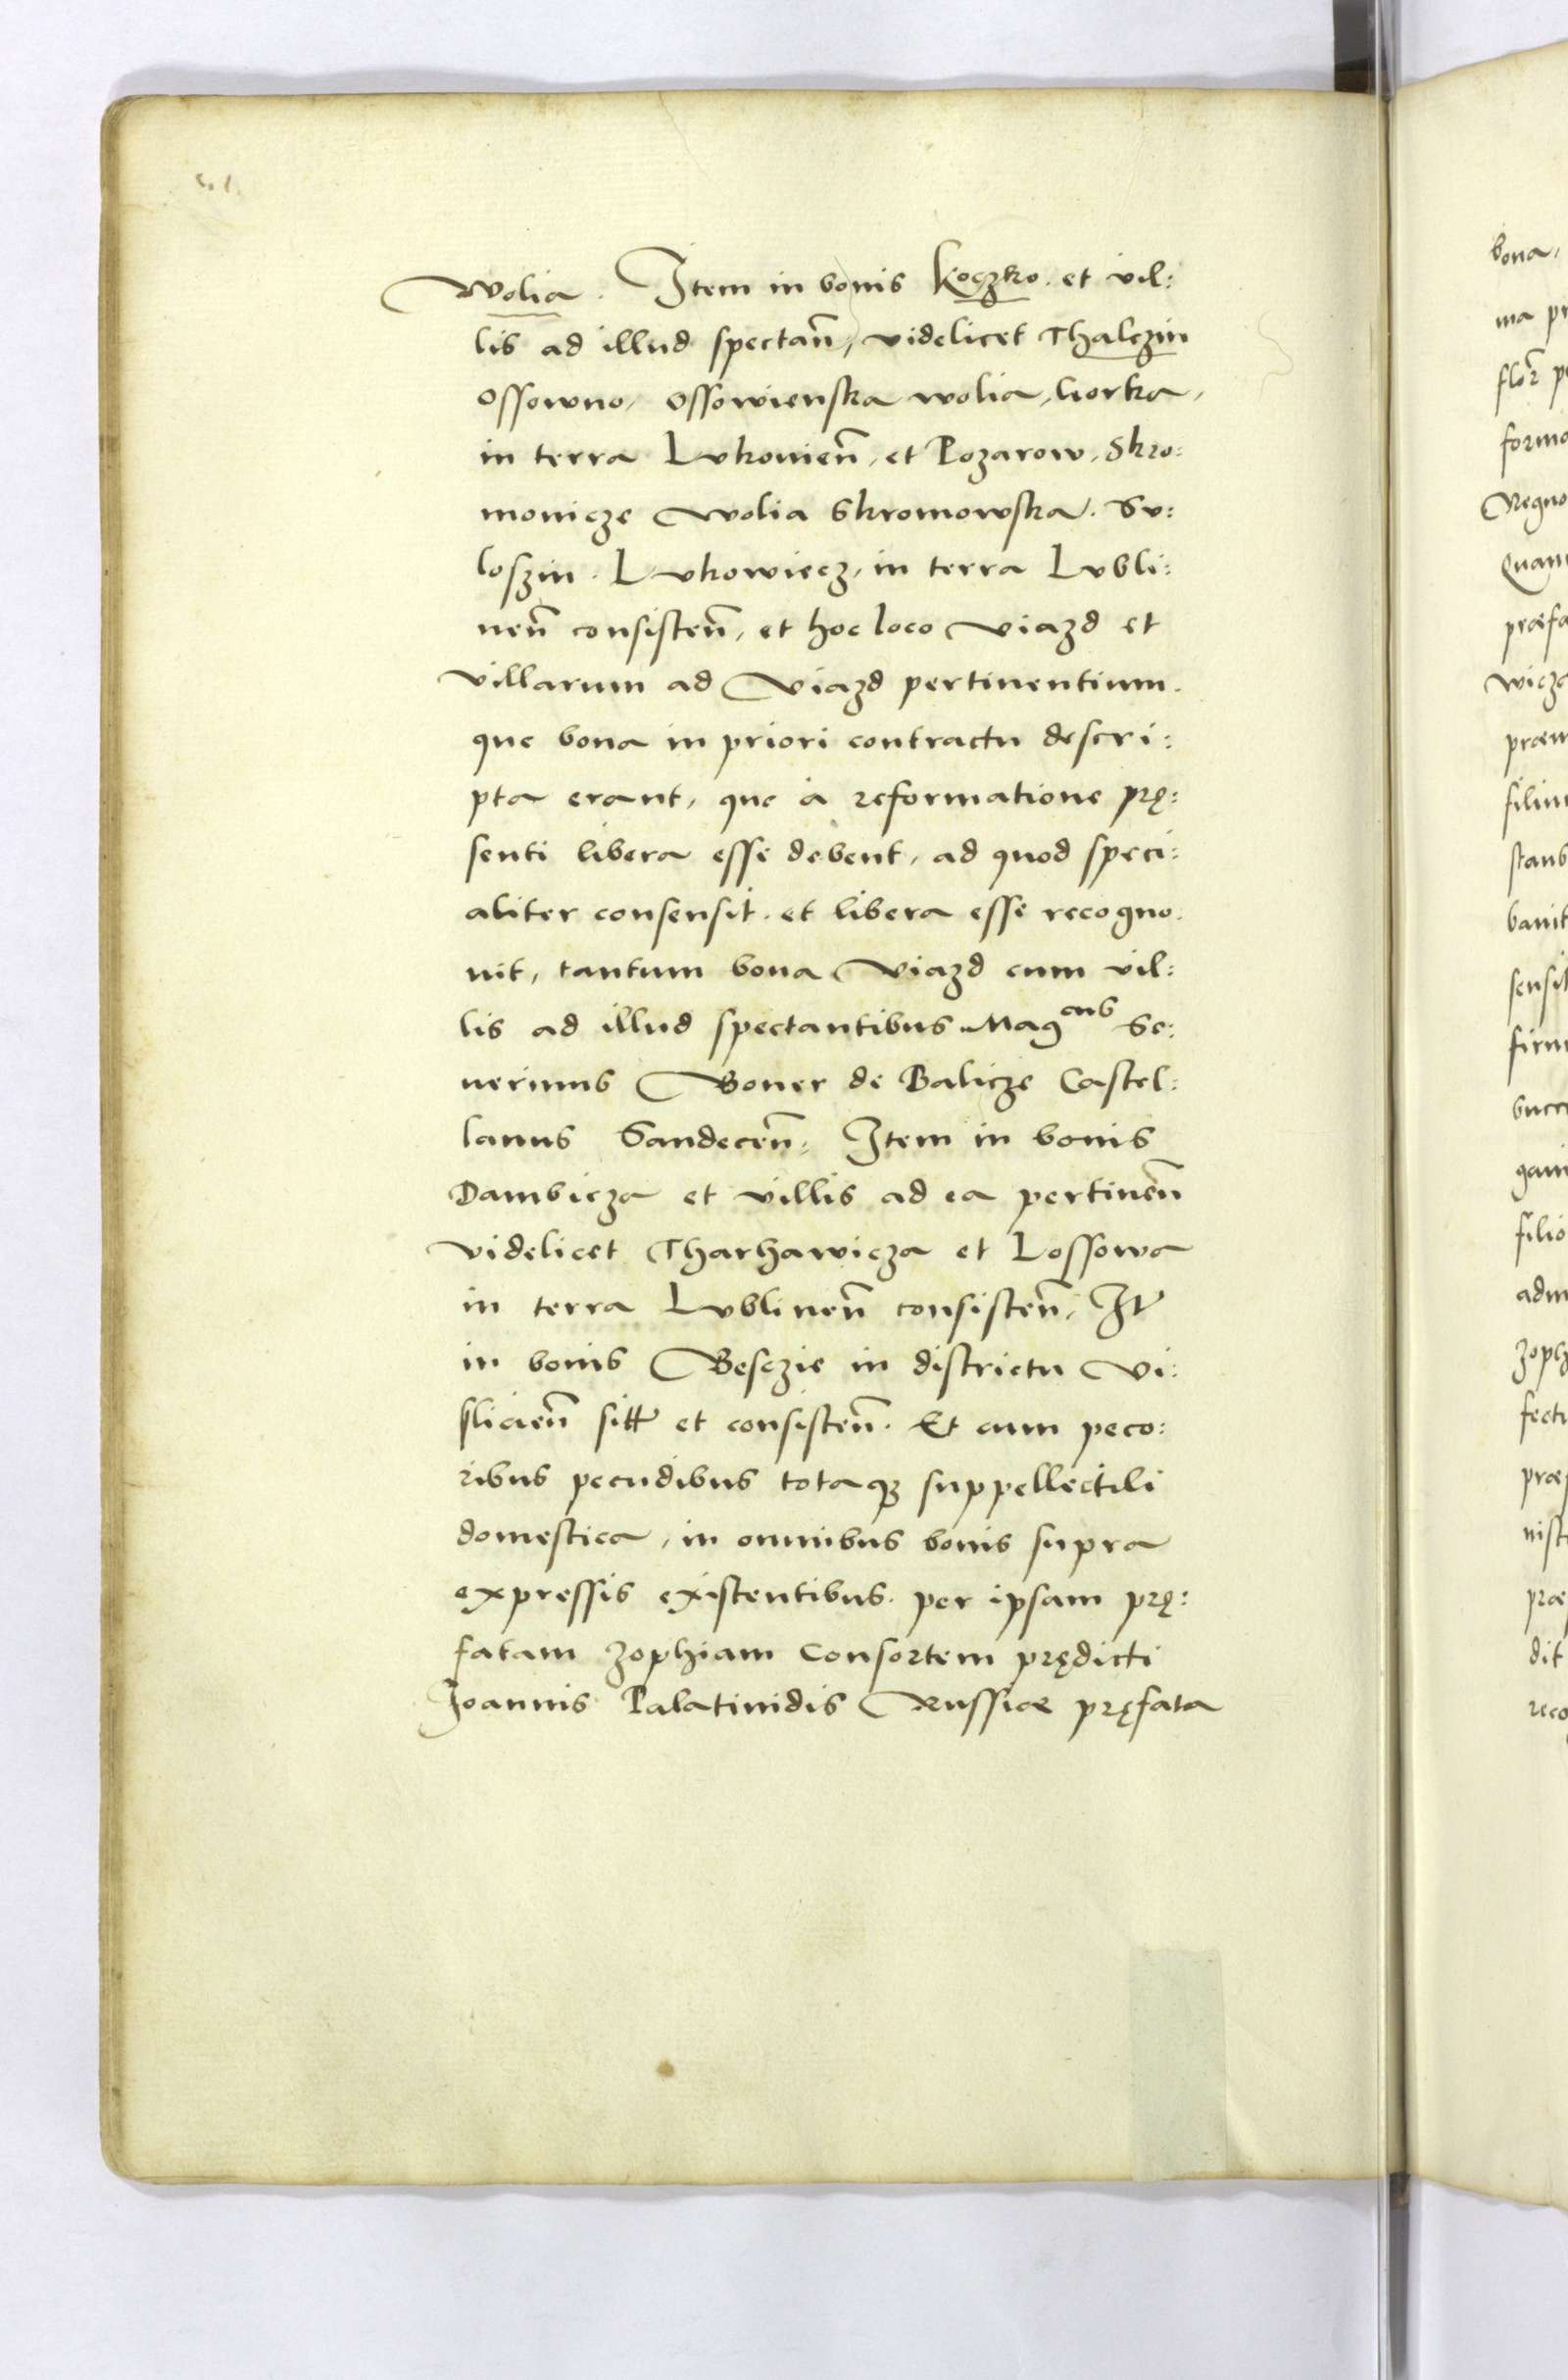 Wolia. Item in bonis Koczko. et vil:
lis ad illud spectañ, videlicet Thalczin
Ossowno, Ossowienska wolia, Gorka,
in terra Lukovieñ, et Pozarow, Skro:
monicze Wolia Skromowska. Su:
loszin. Lukowiecz, in terra Lubli:
neñ consisteñ, et hoc loco Viazd et
villarum ad Viazd pertinentium.
que bona in priori contractu descri:
pta erant, que à reformatione prę:
senti libera esse debent, ad quod speci:
aliter consensit. et libera esse recogno:
uit, tantum bona Viazd cum vil:
lis ad illud spectantibus Mag^cus Se:
uerinus Boner de Balicze Castel:
lanus Sandeceñ. Item in bonis
Dambicza et villis ad ea pertineñ
videlicet Tharhawicza et Lossowa
in terra Lublineñ consisteñ, It
in bonis Besczie in districtu Vi:
slicieñ sitt et consisteñ. Et cum peco:
ribus pecudibus totaq3 suppellectili
domestica, in omnibus bonis supra
expressis existentibus. per ipsam prę:
fatam Zophiam Consortem prędicti
Joannis Palatinidis Russiæ pręfata
bona,
ma pr
flor̃ p
forma
Regno
Quam
præfa
wicza
præm
filiu
stans
bauit
sensit
firm
bucc
gani
filio
adm
Zoph
fectu
præ
nist
præ
dit
reco